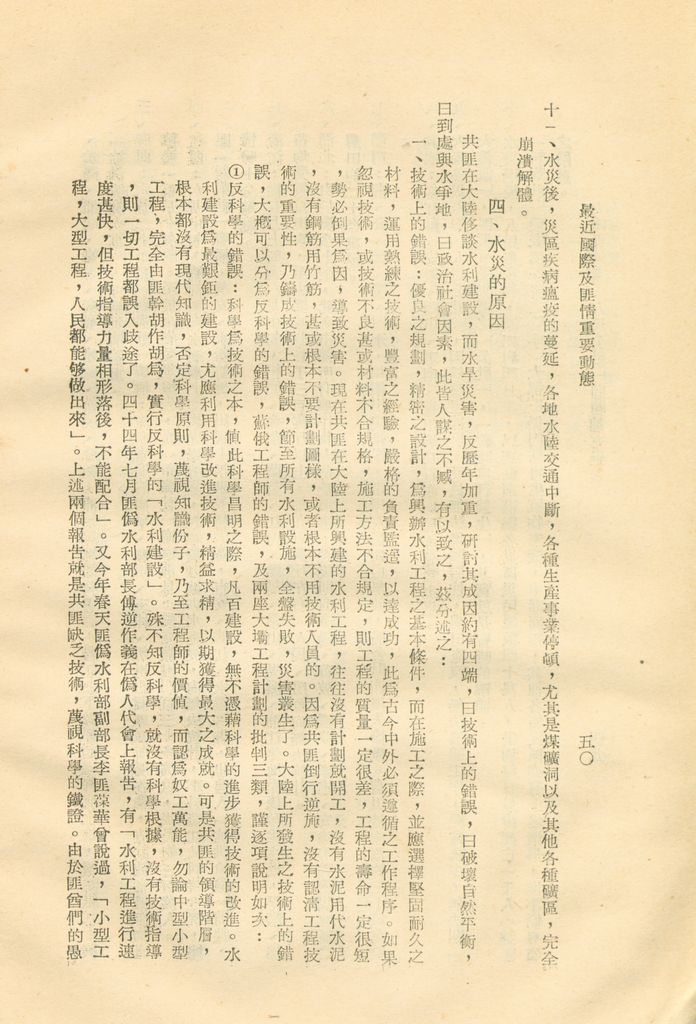 最近國際及匪情重要動態
五〇
十一、水災後，災區疾病瘟疫的蔓延，各地水陸交通中斷，各種生産事業停頓，尤其是煤礦洞以及其他各種礦區，完全
崩潰解體。
四、水災的原因
共匪在大陸侈談水利建設，而水旱災害，反歷年加重，研討其成因約有四端，曰技術上的錯誤，曰破壞自然平衡，
曰到處與水爭地，曰政治社會因素，此皆人謀之不臧，有以致之，茲分述之：
一、技術上的錯誤：優良之規劃，精密之設計，爲興辦水利工程之基本條件，而在施工之際，並應選擇堅固耐久之
材料，運用熟練之技術，豐富之經驗，嚴格的負責監造，以達成功，此爲古今中外必須遵循之工作程序。如果
忽視技術，或技術不良甚或材料不合規格，施工方法不合規定，則工程的質量一定很差，工程的壽命一定很短
，勢必倒果爲因，導致災害。現在共匪在大陸上所興建的水利工程，往往沒有計劃就開工，沒有水泥用代水泥
，沒有鋼筋用竹筋，甚或根本不要計劃圖樣，或者根本不用技術人員的。因爲共匪倒行逆施，沒有認清工程技
術的重要性，乃鑄成技術上的錯誤，節至所有水利設施，全盤失敗，災害叢生了。大陸上所發生之技術上的錯
誤，大概可以分爲反科學的錯誤，蘇俄工程師的錯誤，及兩座大壩工程計劃的批判三類，謹逐項說明如次：
①反科學的錯誤：科學爲技術之本，値此科學昌明之際，凡百建設，無不憑藉科學的進步獲得技術的改進。水
利建設爲最艱鉅的建設，尤應利用科學改進技術，精益求精，以期獲得最大之成就。可是共匪的領導階層，
根本都沒有現代知識，否定科學原則，蔑視知識份子，乃至工程師的價値，而認爲奴工萬能，勿論中型小型
工程，完全由匪幹胡作胡爲，實行反科學的「水利建設」。殊不知反科學，就沒有科學根據，沒有技術指導
，則一切工程都誤入歧途了。四十四年七月匪僞水利部長傅逆作義在僞人代會上報告，有「水利工程進行速
度甚快，但技術指導力量相形落後，不能配合」。又今年春天匪僞水利部副部長李匪葆華曾說過，「小型工
程，大型工程，人民都能够做出來」。上述兩個報告就是共匪缺乏技術，蔑視科學的鐵證。由於匪酋們的愚